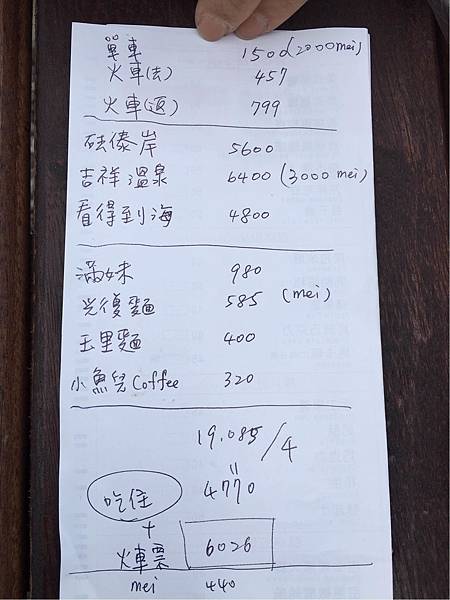 單車 1500(2000mei)
火車(去) 457
火車(返) 799
砝傣岸 5600
吉祥溫泉 6400 (3000 mei)
看得到海 4800
滿妹 980
光復麵 585 (mei)
玉里麵 400
小魚兒Coffee 320
19.085/4
=
吃住 4770
+
火車票 6026
mei 440